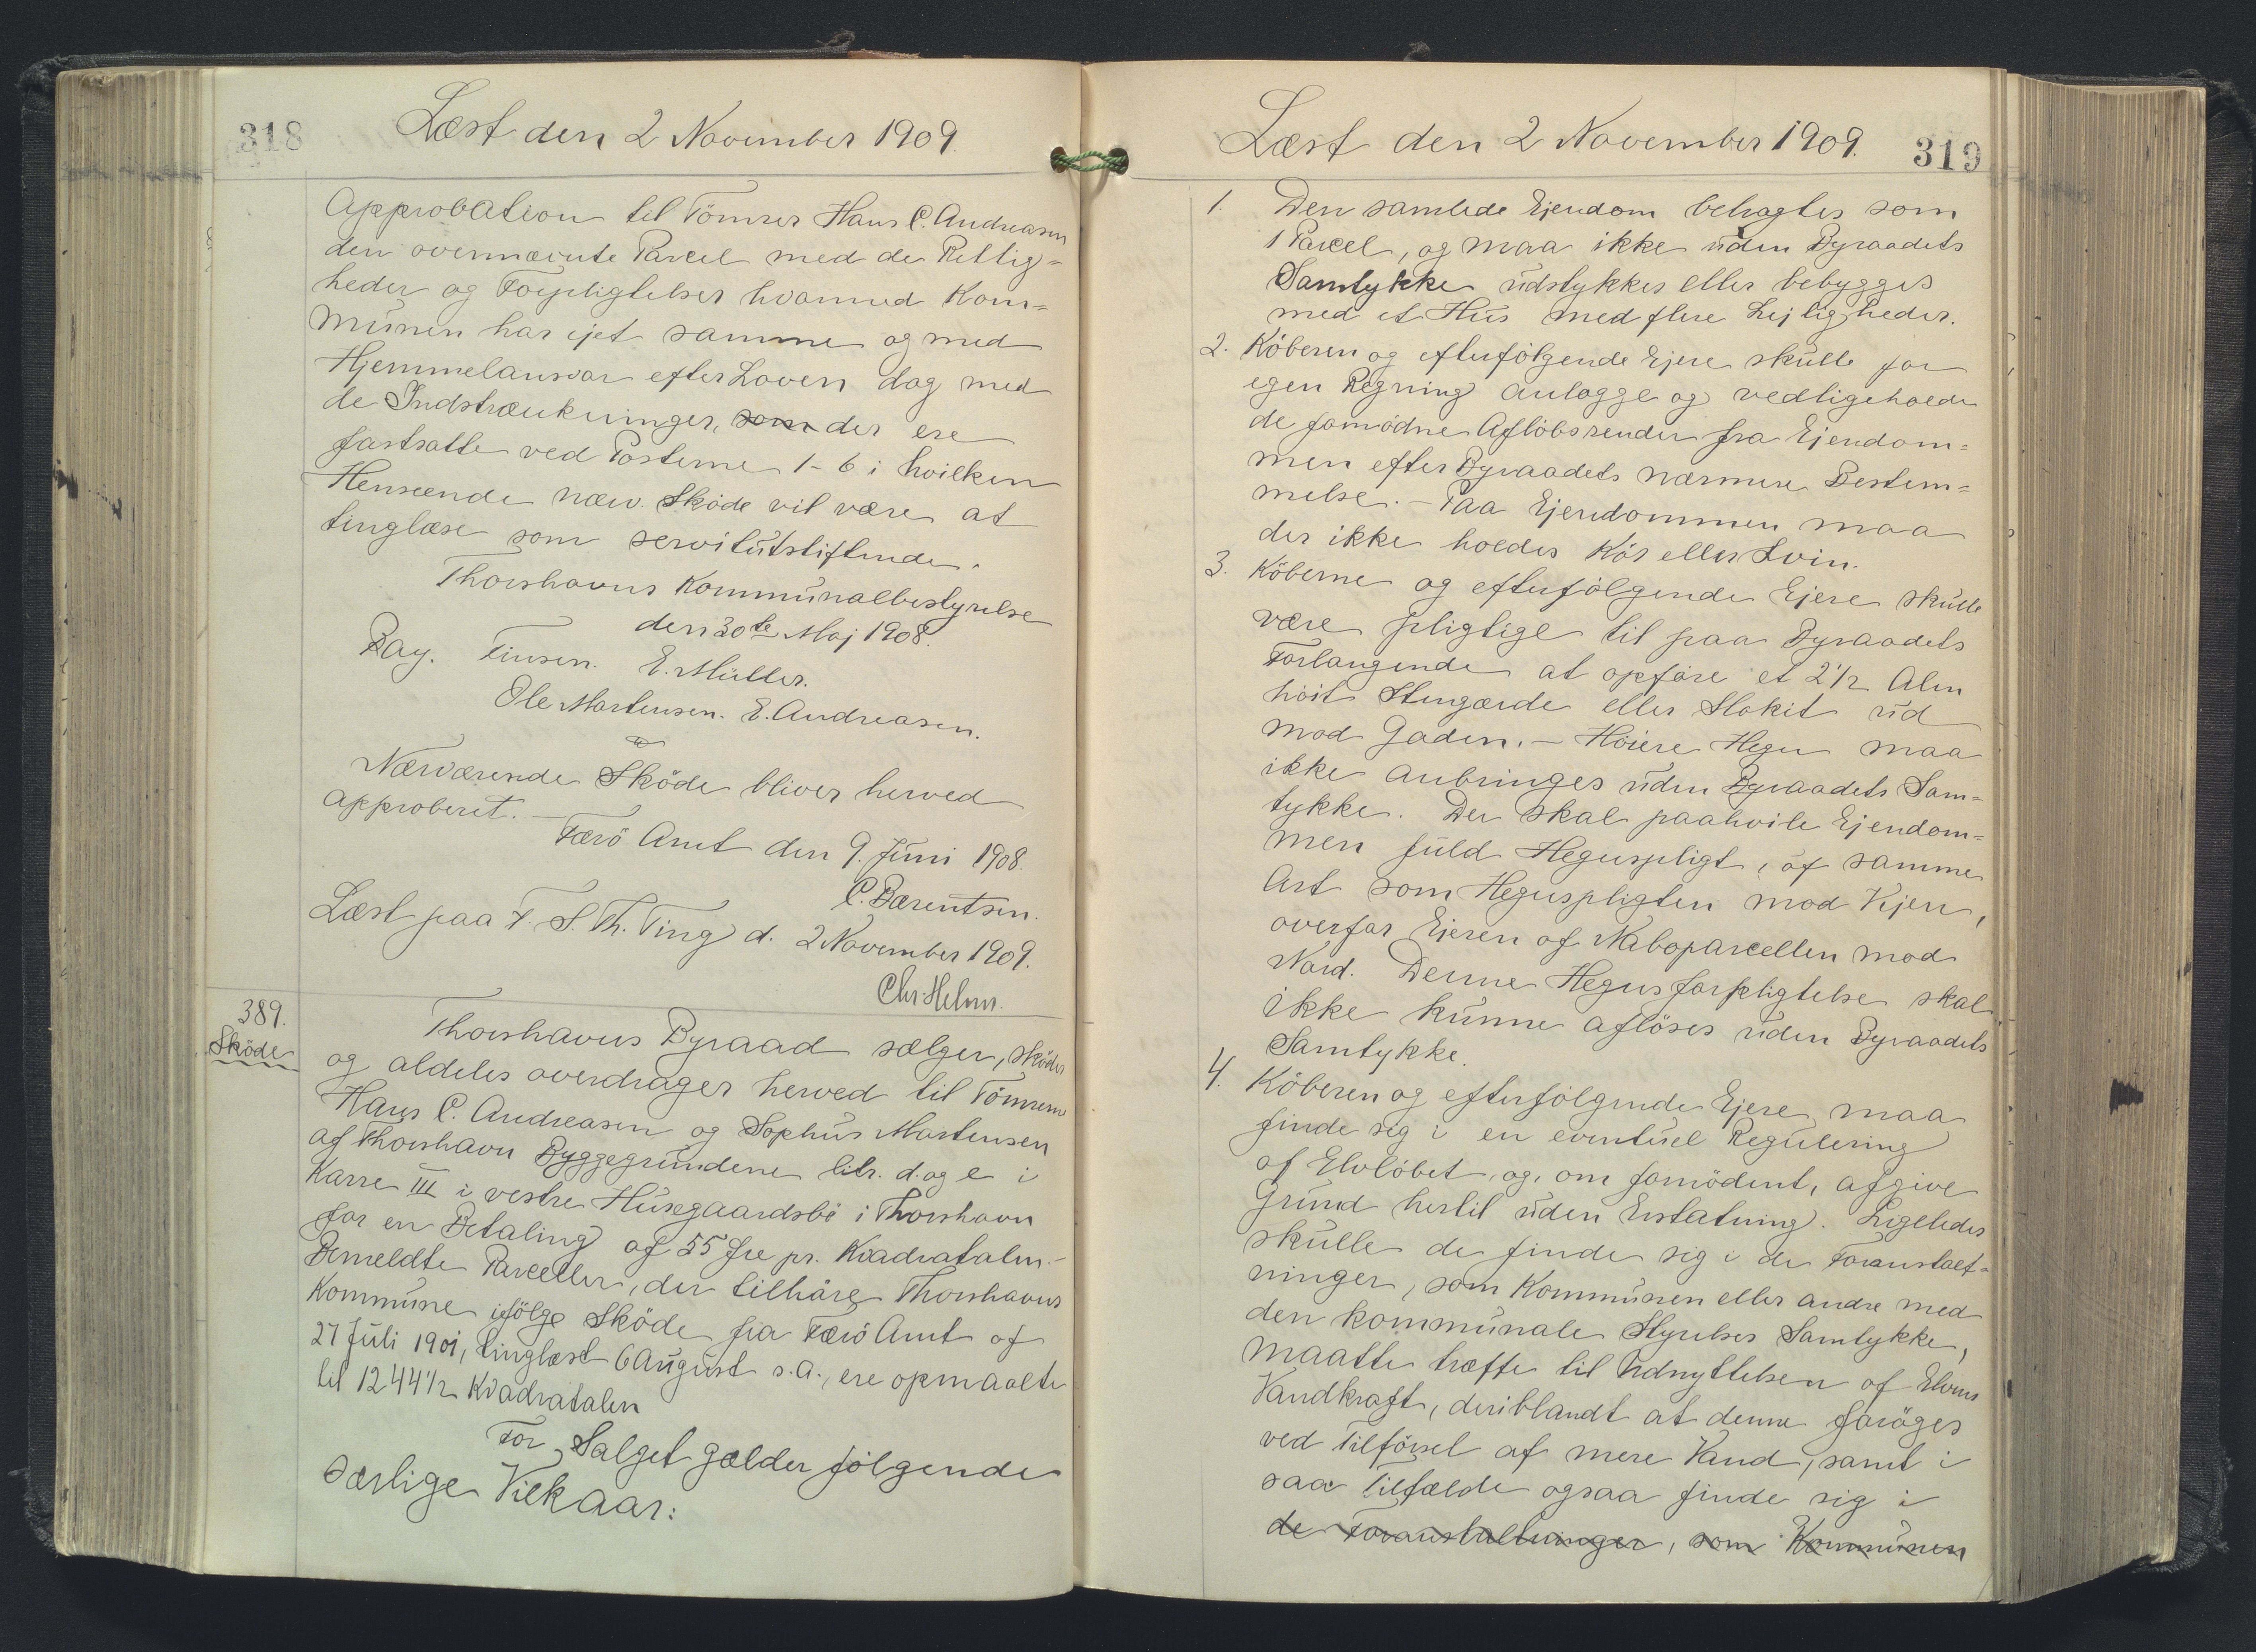 318
Læst den 2 November 1909.
Approbation til Tömrer Hans C. Andreasen
den ovennævnte Parcel med de Rettig=
heder og Forpligtelser hvormed Kom=
munen har ejet samme og med
Hjemmelansvar efter Loven dog med
de Indstrænkninger, som der ere
fastsatte ved Posterne 1-6 i hvilken
Henseende nærv. Sköde vil være at
tinglæse som servitutstiftende.
Thorshavns Kommunalbestyrelse
den 30te Maj 1908.
Bay. Finsen. E. Müller.
Ole Mortensen. E. Andreasen.
Nærværende Sköde bliver herved
approberet. —
Færö Amt den 9. Juni 1908.
C. Bærentsen.
Læst paa F. S. Th. Ting d. 2 November 1909.
Chr. Helms.
389.
Sköde
Thorshavns Byraad sælger, sköder
og aldeles overdrager herved til Tömrerne
Hans C. Andreasen og Sophus Mortensen
af Thorshavn Byggegrundene litr. d. og e i
Karre III i vestre Husegaardsbö i Thorshavn
for en Betaling af 55 Øre pr. Kvadratalen.-
Bemeldte Parceller, der tilhøre Thorshavns
Kommune ifölge Sköde fra Færö Amt af
27 Juli 1901, tinglæst 6 August s.a., ere opmaalte
til 1244 1/2 Kvadratalen
For Salget gælder følgende
særlige Vilkaar:
Læst den 2 November 1909.
319
1. Den samlede Ejendom betragtes som
1 Parcel, og maa ikke uden Byraadets
Samtykke udstykkes eller bebygges
med et Hus med flere Lejligheder.
2. Köberen og efterfölgende Ejere skulle for
egen Regning anlægge og vedligeholde
de fornödne Aflöbsrender fra Ejendom=
men efter Byraadets nærmere Bestem=
melse. - Paa Ejendommen maa
der ikke holdes Kör eller Svin.
3. Köberne og efterfølgende Ejere skulle
være pligtige til paa Byraadets
Forlangende at opføre et 2 1/2 Alen
höit Stengærde eller Stakit ud
mod Gaden. — Höiere Hegn maa
ikke anbringes uden Byraadets Sam=
tykke. Der skal paahvile Ejendom=
men fuld Hegnspligt, af samme
Art som Hegnspligten mod Vejen,
overfor Ejeren af Naboparcellen mod
Nord. Denne Hegnsforpligtelse skal
ikke kunne aflöses uden Byraadets
Samtykke.
4. Köberen og efterfölgende Ejere maa
finde sig i en eventuel Regulering
af Elvløbet, og, om fornödent, afgive
Grund hertil uden Erstatning. Ligeledes
skulle de finde sig i de Foranstalt=
ninger, som Kommunen eller andre med
den kommunale Styrelses Samtykke,
maatte træffe til Udnyttelsen af Elvens
Vandkraft, deriblandt at denne forøges
ved Tilförsel af mere Vand, samt i
saa Tilfælde ogsaa finde sig i
de Foranstaltninger, som Kommunen